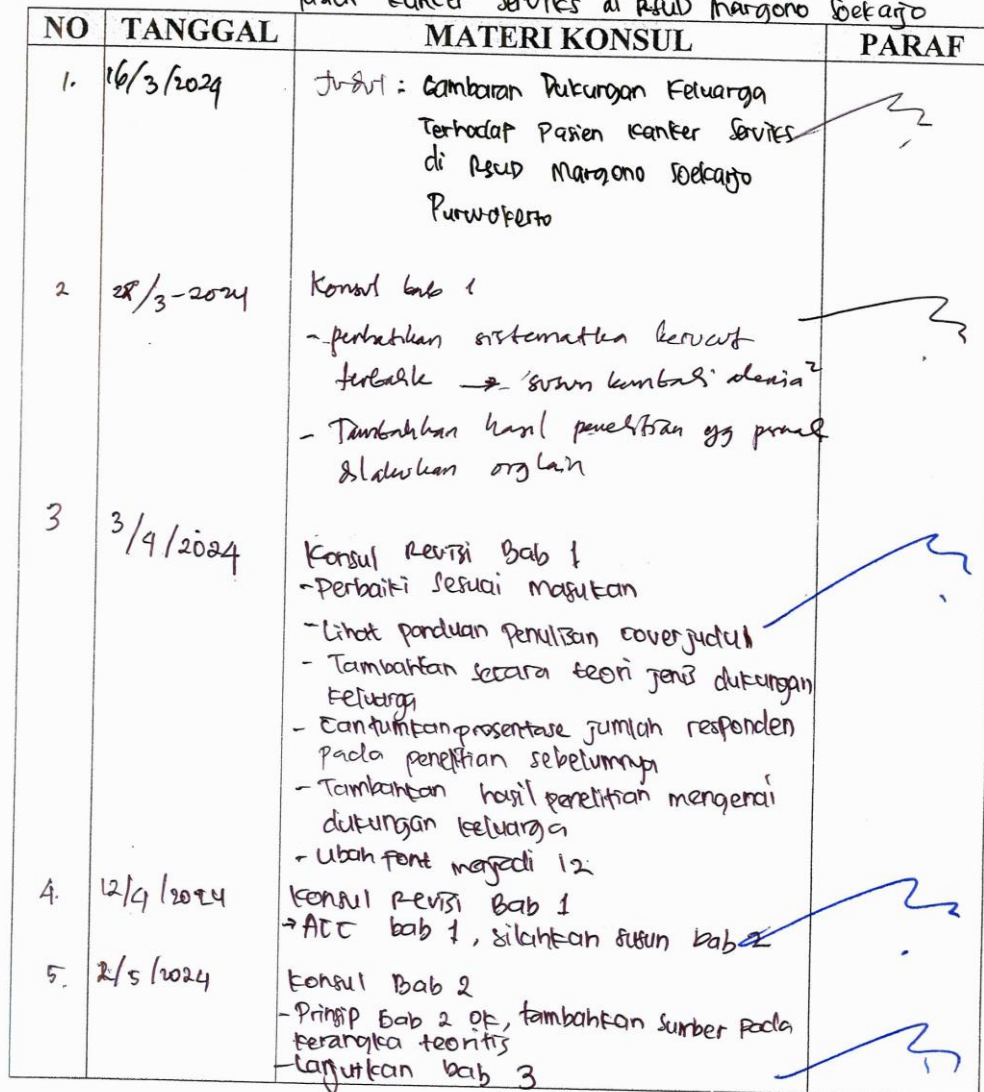 pada kanker serviks di RSUD Margono Soekarjo
NO TANGGAL MATERI KONSUL PARAF
1. 16/3/2024 Judul : Gambaran Dukungan Keluarga
Terhadap Pasien Kanker Serviks
di RSUD Margono Soekarjo
Purwokerto
2 28/3-2024 Konsul bab 1
- perhatikan sistematika kerucut
terbalik → susun kembali
- Tambahkan hasil penelitian yg pernah
dilakukan org lain
3 3/4/2024 Konsul Revisi Bab 1
- Perbaiki sesuai masukan
- Lihat panduan penulisan cover judul
- Tambahkan secara teori jenis dukungan
keluarga
- Cantumkan prosentase jumlah responden
pada penelitian sebelumnya
- Tambahkan hasil penelitian mengenai
dukungan keluarga
- Ubah font menjadi 12
4. 12/4/2024 Konsul Revisi Bab 1
→ ACC bab 1, silahkan susun bab 2
5. 2/5/2024 Konsul Bab 2
- Prinsip Bab 2 OK, tambahkan sumber pada
kerangka teoritis
- Lanjutkan bab 3